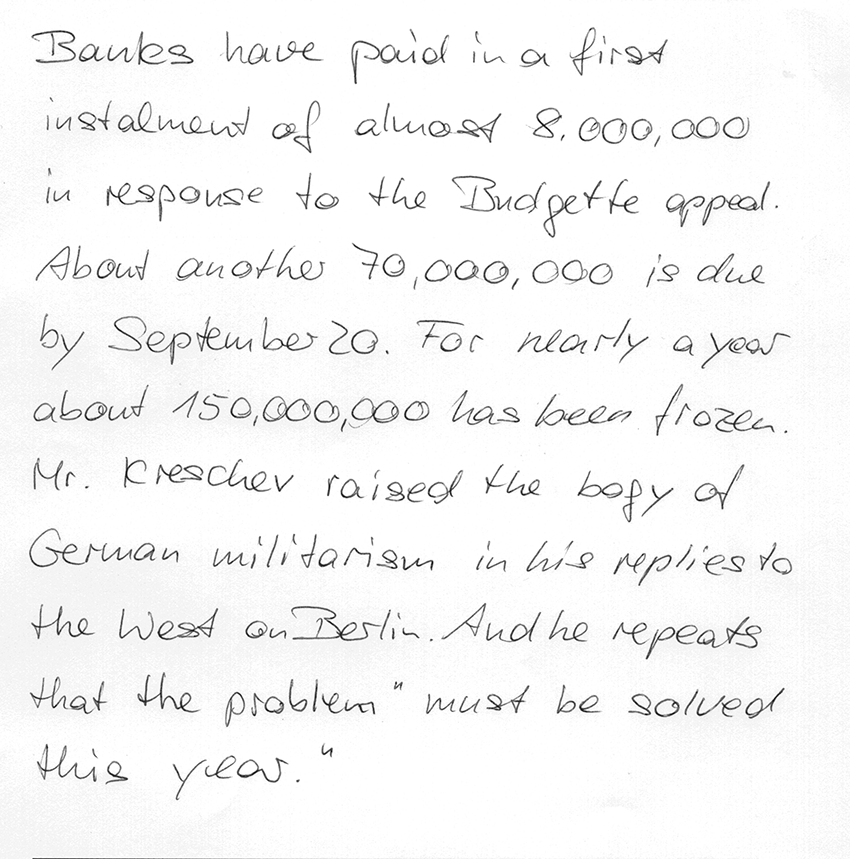 Banks have paid in a first
instalment of almost 8.000,000
in response to the Budgette appeal.
About another 70,000,000 is due
by September 20. For nearly a year
about 150,000,000 has been frozen.
Mr. Kreschev raised the bogy of
German militarism in his replies to
the West on Berlin. And he repeats
that the problem " must be solved
this year. "